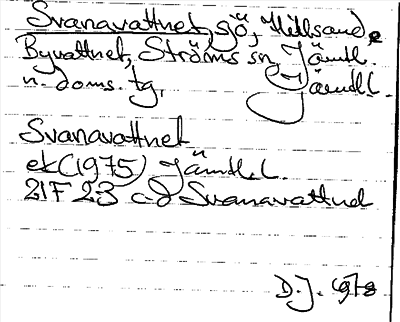 Svanavattnet, sjö, Hillsand,
Byvattnet, Ströms sn, Jämtl.
n. doms. tg, Jämtl.l.
Svanavattnet
ek (1975) Jämtl.l.
21F 23 cd Svanavattnet
D.J. 1978